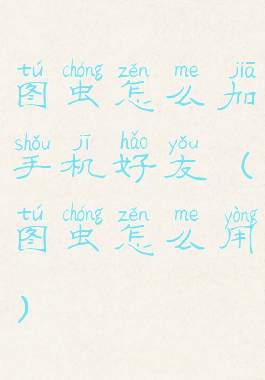 tú chóng zěn me jiā
图虫怎么加
shǒu jī hǎo yǒu
手机好友（
tú chóng zěn me yòng
图虫怎么用
）